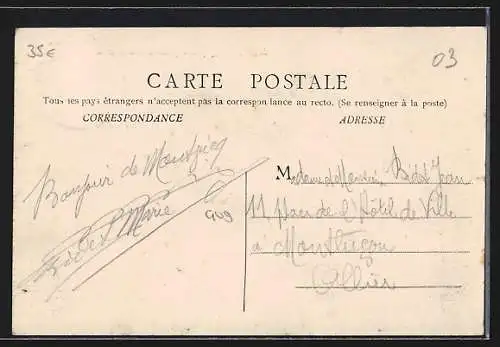 35€
03
CARTE POSTALE
Tous les pays étrangers n'acceptent pas la correspondance au recto. (Se renseigner à la poste)
CORRESPONDANCE
ADRESSE
Bonjour de
Marie
G409
M
11 place de l'Hôtel de Ville
à Montluçon
Allier